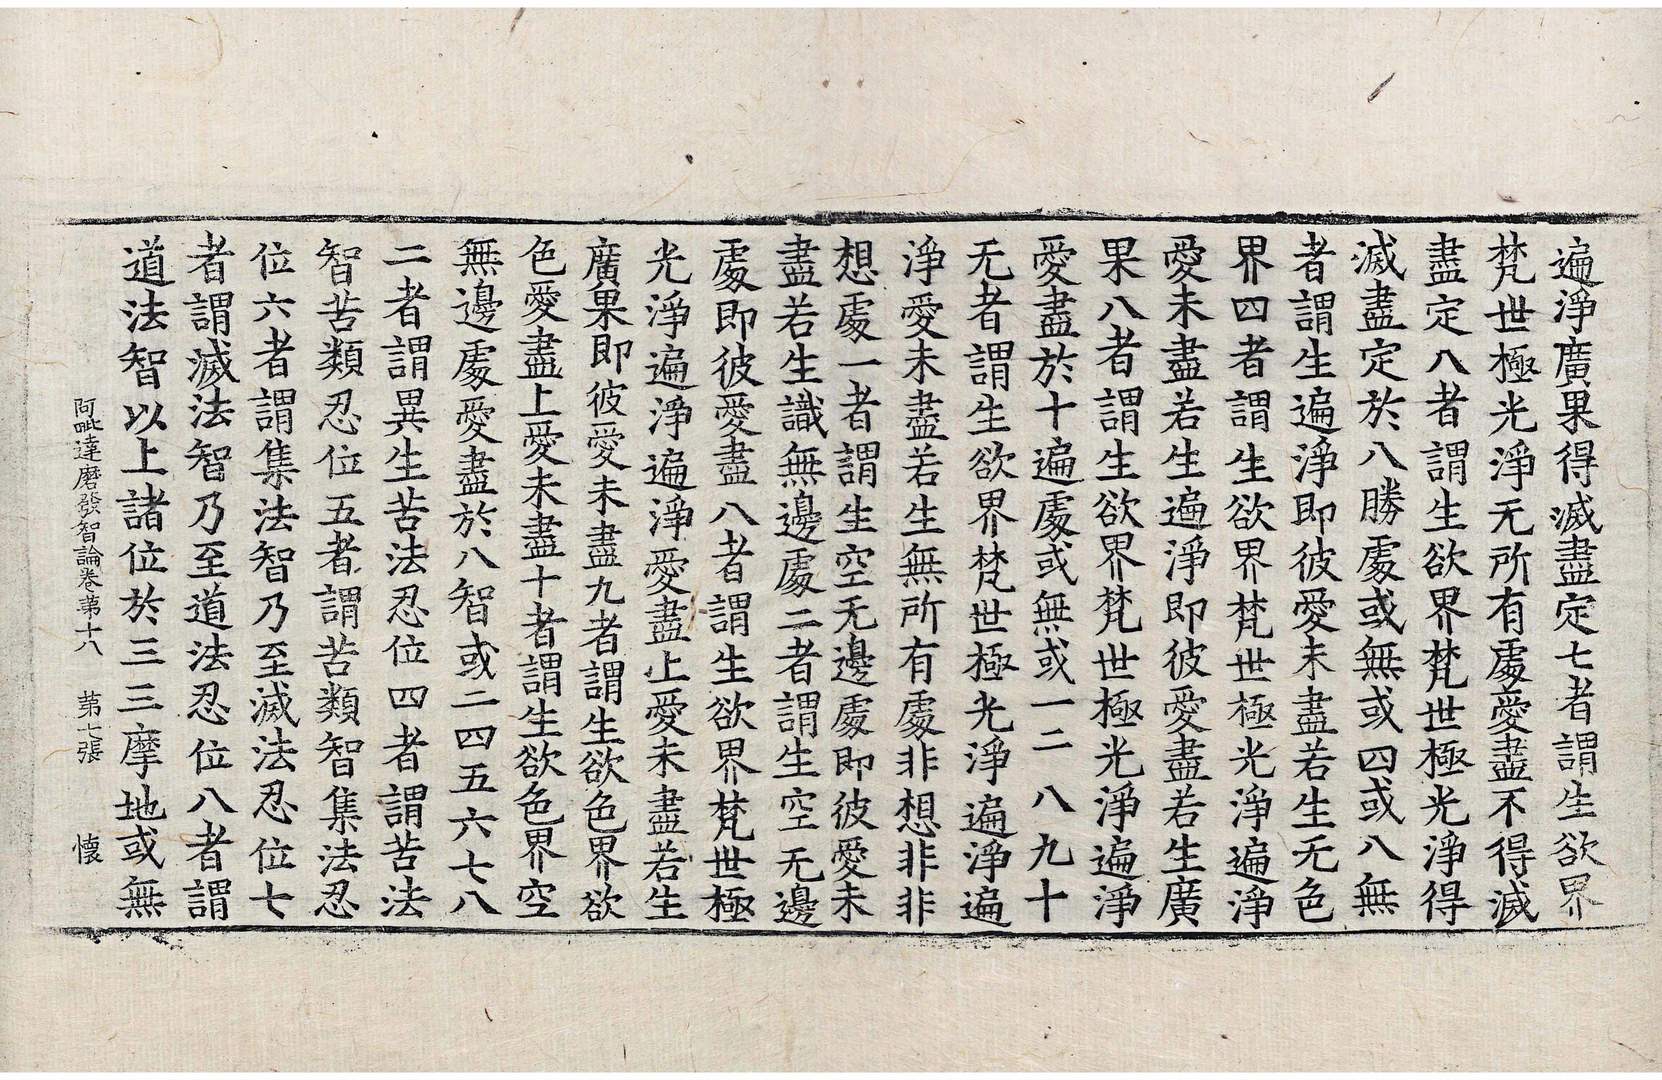 遍淨廣果得滅盡定七者謂生欲界
梵世極光淨无所有處愛盡不得滅
盡定八者謂生欲界梵世極光淨得
滅盡定於八勝處或無或四或八無
者謂生遍淨即彼愛未盡若生无色
界四者謂生欲界梵世極光淨遍淨
愛未盡若生遍淨即彼愛盡若生廣
果八者謂生欲界梵世極光淨遍淨
愛盡於十遍處或無或一二八九十
无者謂生欲界梵世極光淨遍淨遍
淨愛未盡若生無所有處非想非非
想處一者謂生空无邊處即彼愛未
盡若生識無邊處二者謂生空无邊
處即彼愛盡八者謂生欲界梵世極
光淨遍淨遍淨愛盡上愛未盡若生
廣果即彼愛未盡九者謂生欲色界欲
色愛盡上愛未盡十者謂生欲色界空
無邊處愛盡於八智或二四五六七八
二者謂異生苦法忍位四者謂苦法
智苦類忍位五者謂苦類智集法忍
位六者謂集法智乃至滅法忍位七
者謂滅法智乃至道法忍位八者謂
道法智以上諸位於三三摩地或無
阿毗達磨發智論卷苐十八 苐七張 懷